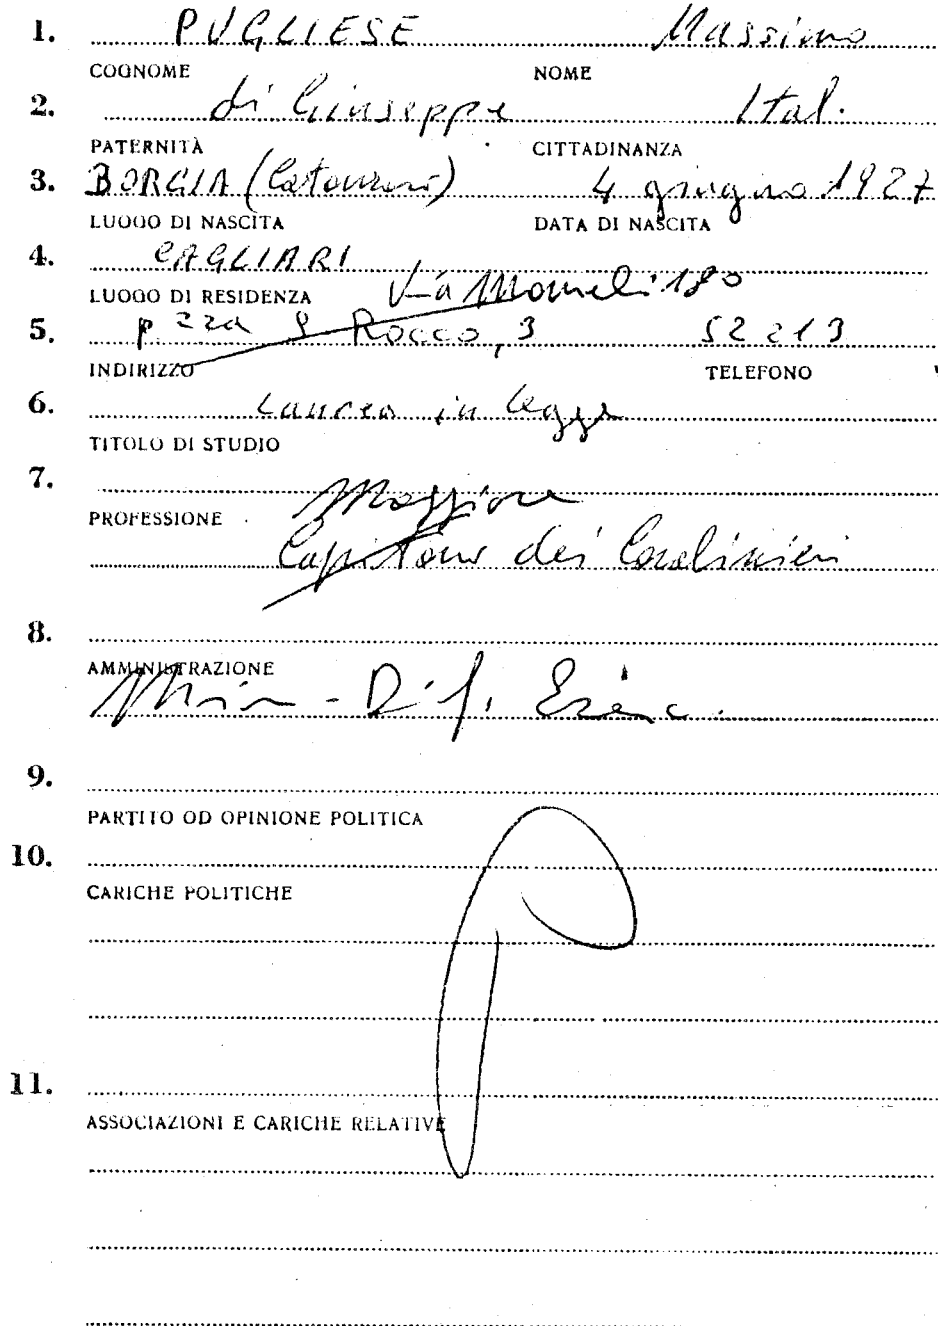 1. PUGLIESE Massimo
COGNOME NOME
2. di Giuseppe Ital.
PATERNITÀ CITTADINANZA
3. BORGIA (Catanzaro) 4 giugno 1927
LUOGO DI NASCITA DATA DI NASCITA
4. CAGLIARI
LUOGO DI RESIDENZA Via Mameli 180
5. p.zza S Rocco, 3 52213
INDIRIZZO TELEFONO
6. Laurea in legge
TITOLO DI STUDIO
7. Maggiore
PROFESSIONE
Capitano dei Carabinieri
8.
AMMINISTRAZIONE
Min - Dif. Eserc.
9.
PARTITO OD OPINIONE POLITICA
10.
CARICHE POLITICHE
11.
ASSOCIAZIONI E CARICHE RELATIVE